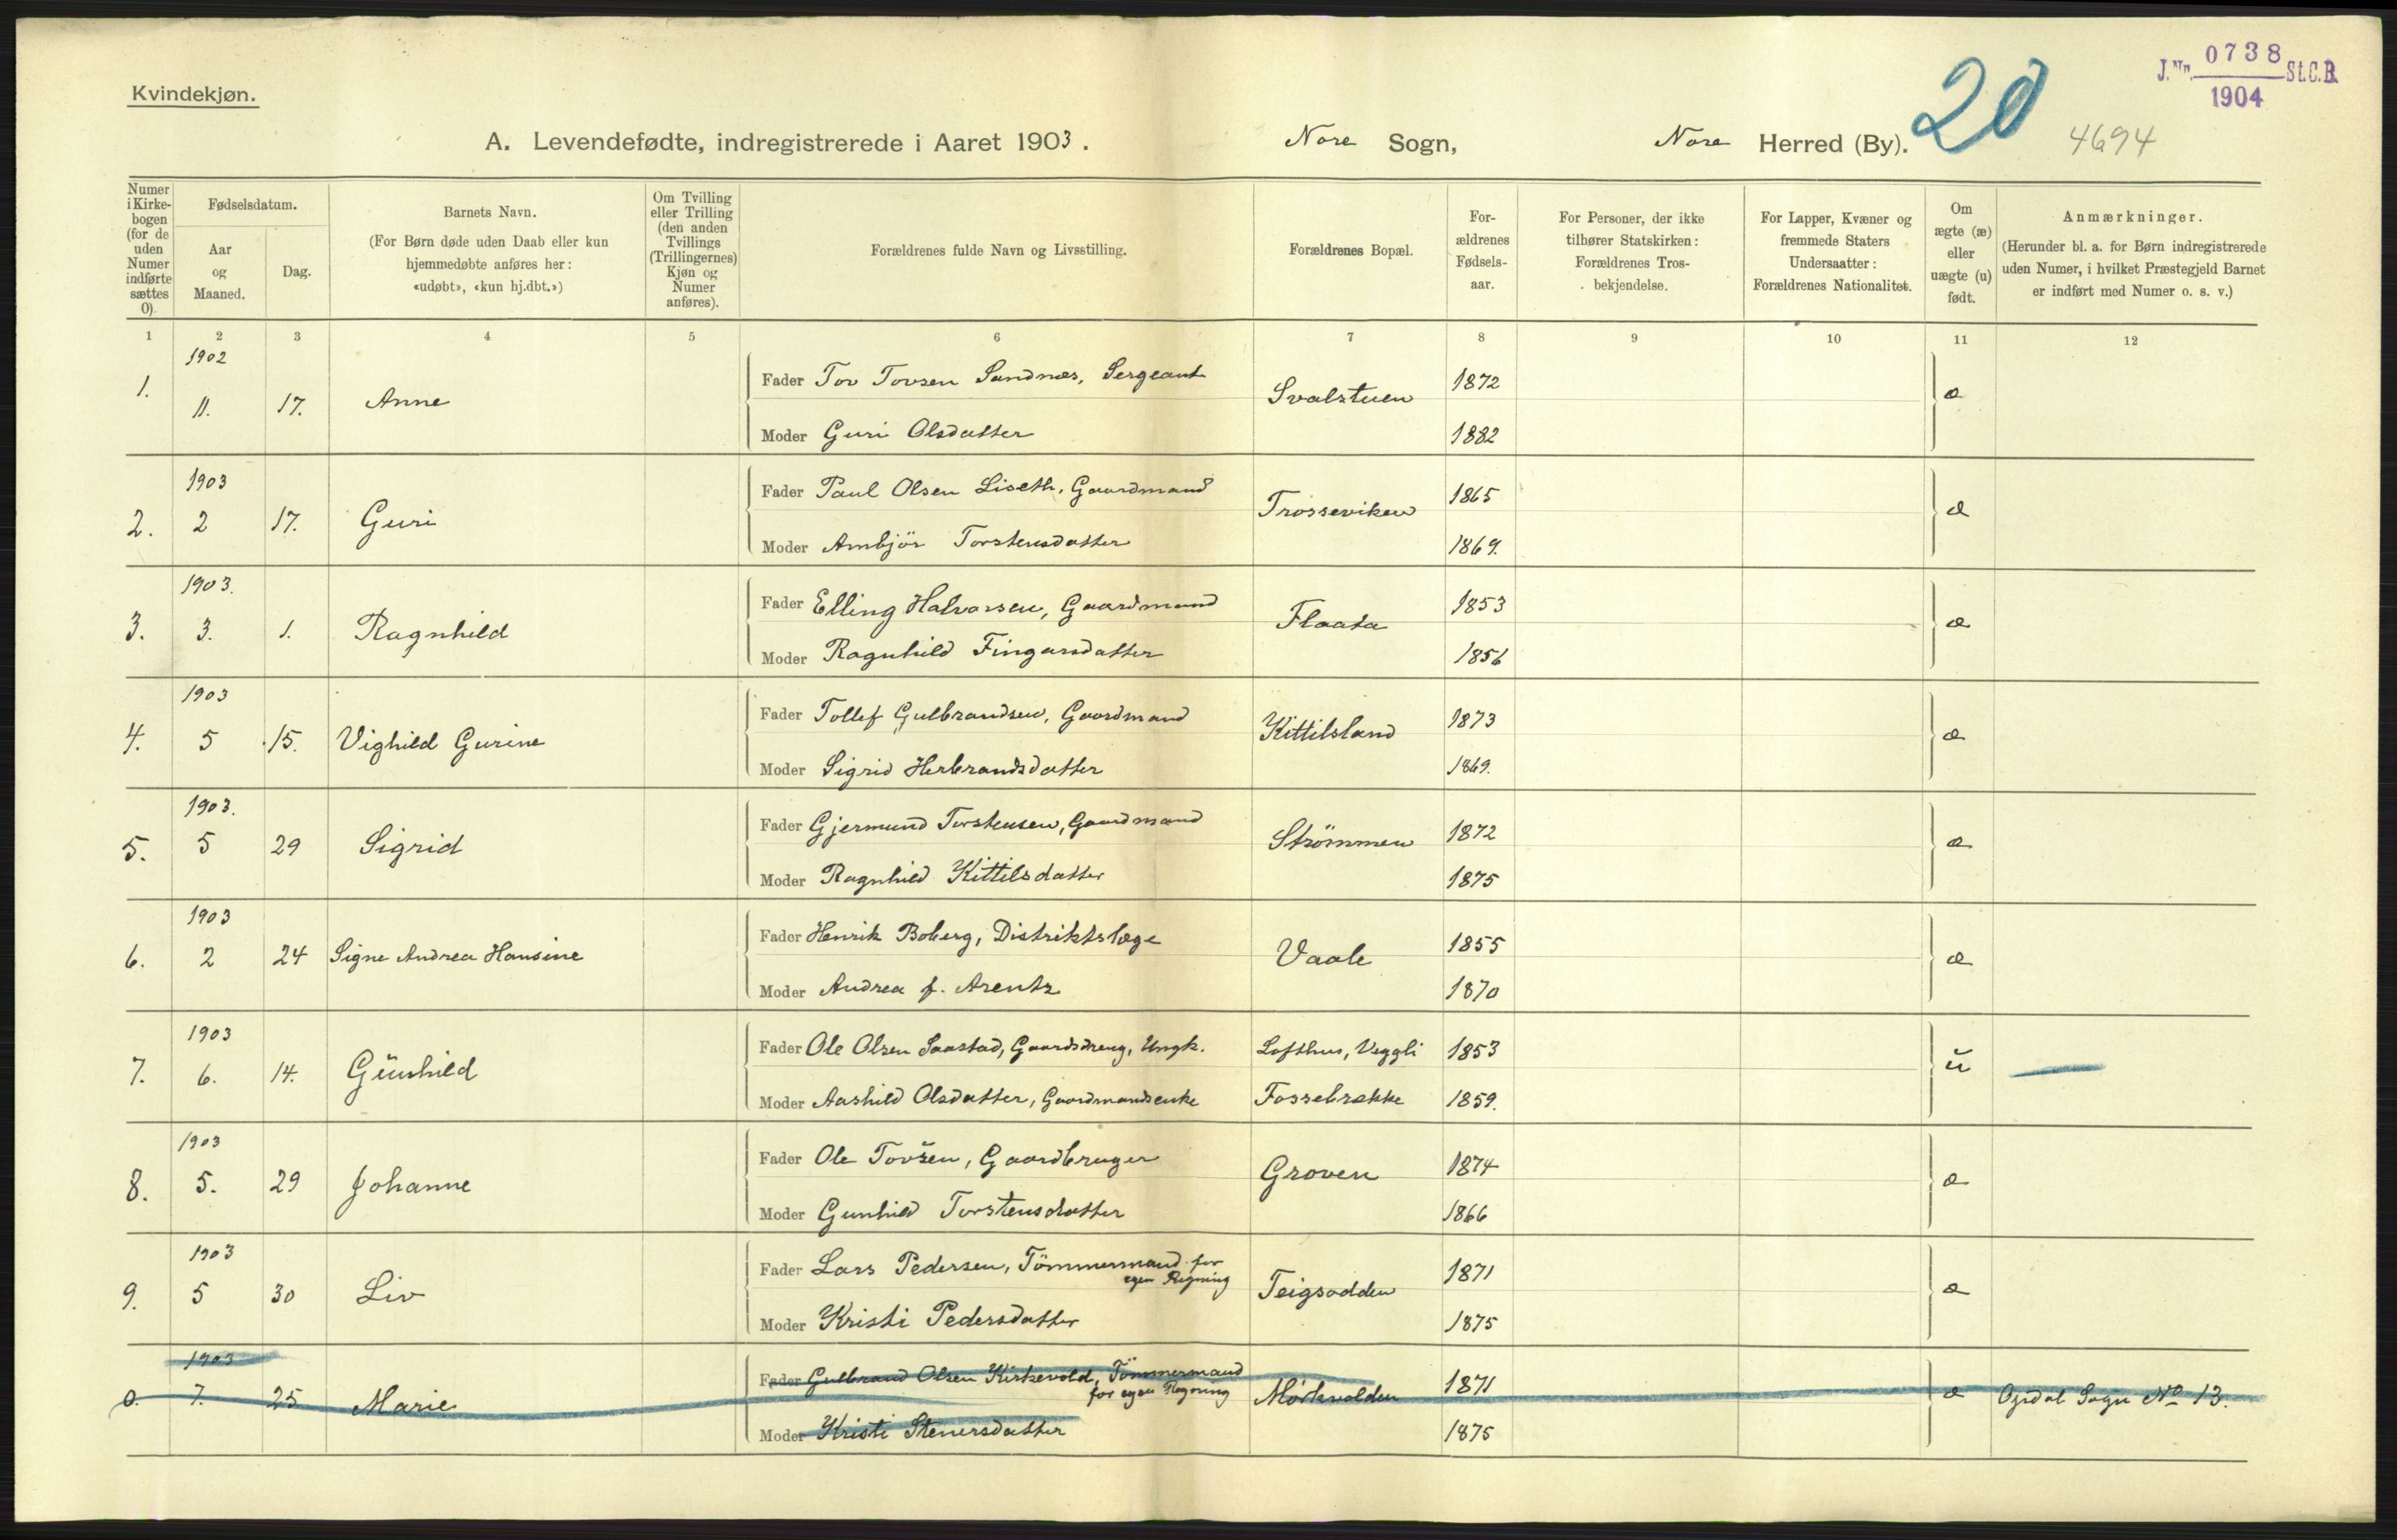 Kvindekjøn.
J.Nr. 0738 St.C.B.
1904
20
4694
A. Levendefødte, indregistrerede i Aaret 1903. Nore Sogn, Nore Herred (By).
Numer i Kirkebogen (for de uden Numer indførte sættes 0).
Fødselsdatum.
Aar og Maaned.
Dag.
Barnets Navn.
(For Børn døde uden Daab eller kun hjemmedøbte anføres her: «udøbt», «kun hj.dbt.»)
Om Tvilling eller Trilling (den anden Tvillings (Trillingernes) Kjøn og Numer anføres).
Forældrenes fulde Navn og Livsstilling.
Forældrenes Bopæl.
Forældrenes Fødselsaar.
For Personer, der ikke tilhører Statskirken: Forældrenes Trosbekjendelse.
For Lapper, Kvæner og fremmede Staters Undersaatter: Forældrenes Nationalitet.
Om ægte (æ) eller uægte (u) født.
Anmærkninger.
(Herunder bl. a. for Børn indregistrerede uden Numer, i hvilket Præstegjeld Barnet er indført med Numer o. s. v.)
1 2 3 4 5 6 7 8 9 10 11 12
1902
1. 11. 17. Anne Fader Tov Tovsen Sandnes, Sergeant Svalstuen 1872 æ
Moder Guri Olsdatter 1882
1903
2. 2 17. Guri Fader Paul Olsen Liseth, Gaardmand Trosseviken 1865 æ
Moder Ambjör Torstensdatter 1869.
1903.
3. 3. 1. Ragnhild Fader Elling Halvorsen, Gaardmand Flaata 1853 æ
Moder Ragnhild Fingarsdatter 1856
1903
4. 5 15. Vighild Gurine Fader Tollef Gulbrandsen, Gaardmand Kittilsland 1873 æ
Moder Sigrid Herbrandsdatter 1869.
1903.
5. 5 29 Sigrid Fader Gjermund Torstensen, Gaardmand Strömmen 1872 æ
Moder Ragnhild Kittilsdatter 1875
1903
6. 2 24 Signe Andrea Hansine Fader Henrik Boberg, Distriktslæge Vaale 1855 æ
Moder Andrea f. Arentz 1870
1903
7. 6. 14. Gŭnhild Fader Ole Olsen Saastad, Gaardsdreng, Ungk. Lofthus, Veggli 1853 ŭ
Moder Aashild Olsdatter, Gaardmandsenke Fossebrække 1859.
1903
8. 5. 29 Johanne Fader Ole Tovsen, Gaardbruger Groven 1874 æ
Moder Gunhild Torstensdatter 1866
1903
9. 5 30 Liv Fader Lars Pedersen, Tömmermand for egen Regning Teigsodden 1871 æ
Moder Kristi Pedersdatter 1875
1903
0. 7. 25 Marie Fader Gulbrand Olsen Kirkevold, Tömmermand for egen Regning Mörkvolden 1871 æ Opdal Sogn No 13.
Moder Kristi Stenersdatter 1875